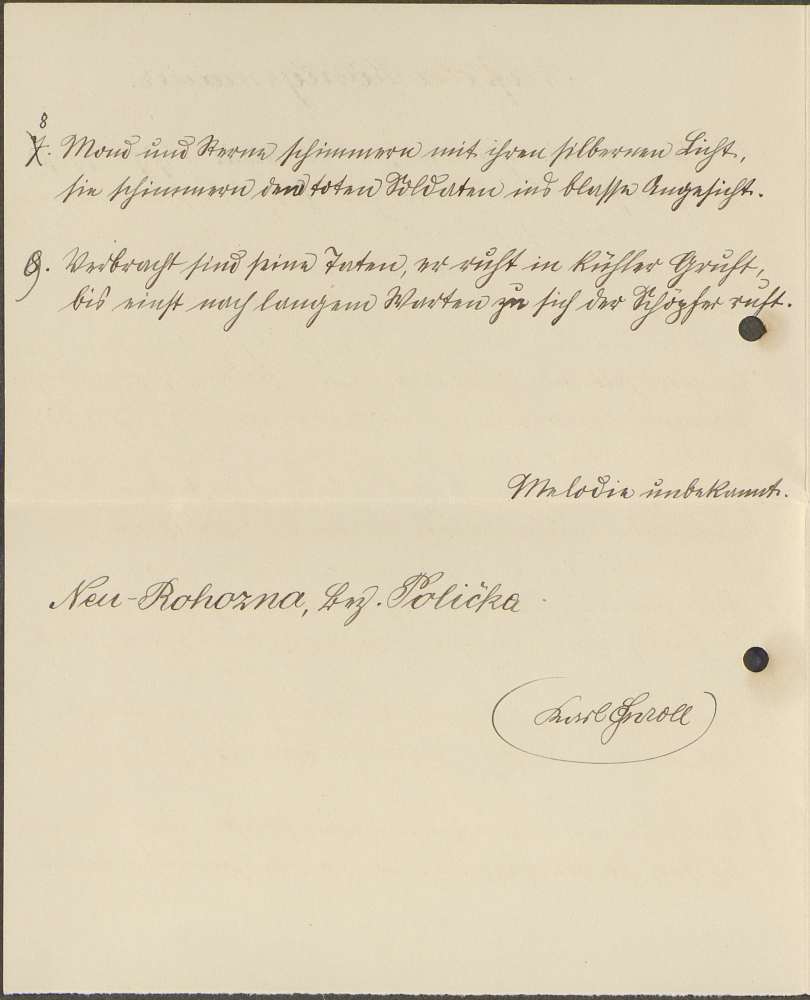 8
7. Mond und Sterne schimmern mit ihren silbernen Licht,
sie schimmern den toten Soldaten ins blasse Angesicht.
9. Verbracht sind seine Taten, er ruht in kühler Gruft,
bis einst nach langem Warten zu sich der Schöpfer ruft.
Melodie unbekannt.
Neu-Rohozna, Bez. Polička
Karl